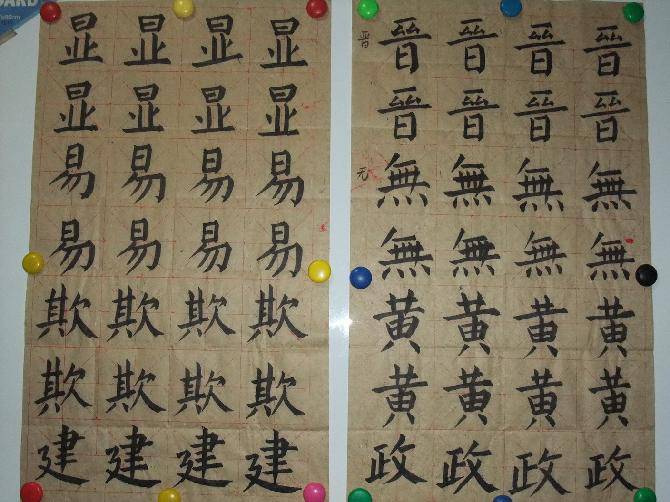 显 显 显 显
显 显 显 显
易 易 易 易
易 易 易 易
欺 欺 欺 欺
欺 欺 欺 欺
建 建 建 建
晋 晉 晉 晉 晉
晉 晉 晉 晉
無 無 無 無
無 無 無 無
黄 黄 黄 黄
黄 黄 黄 黄
政 政 政 政